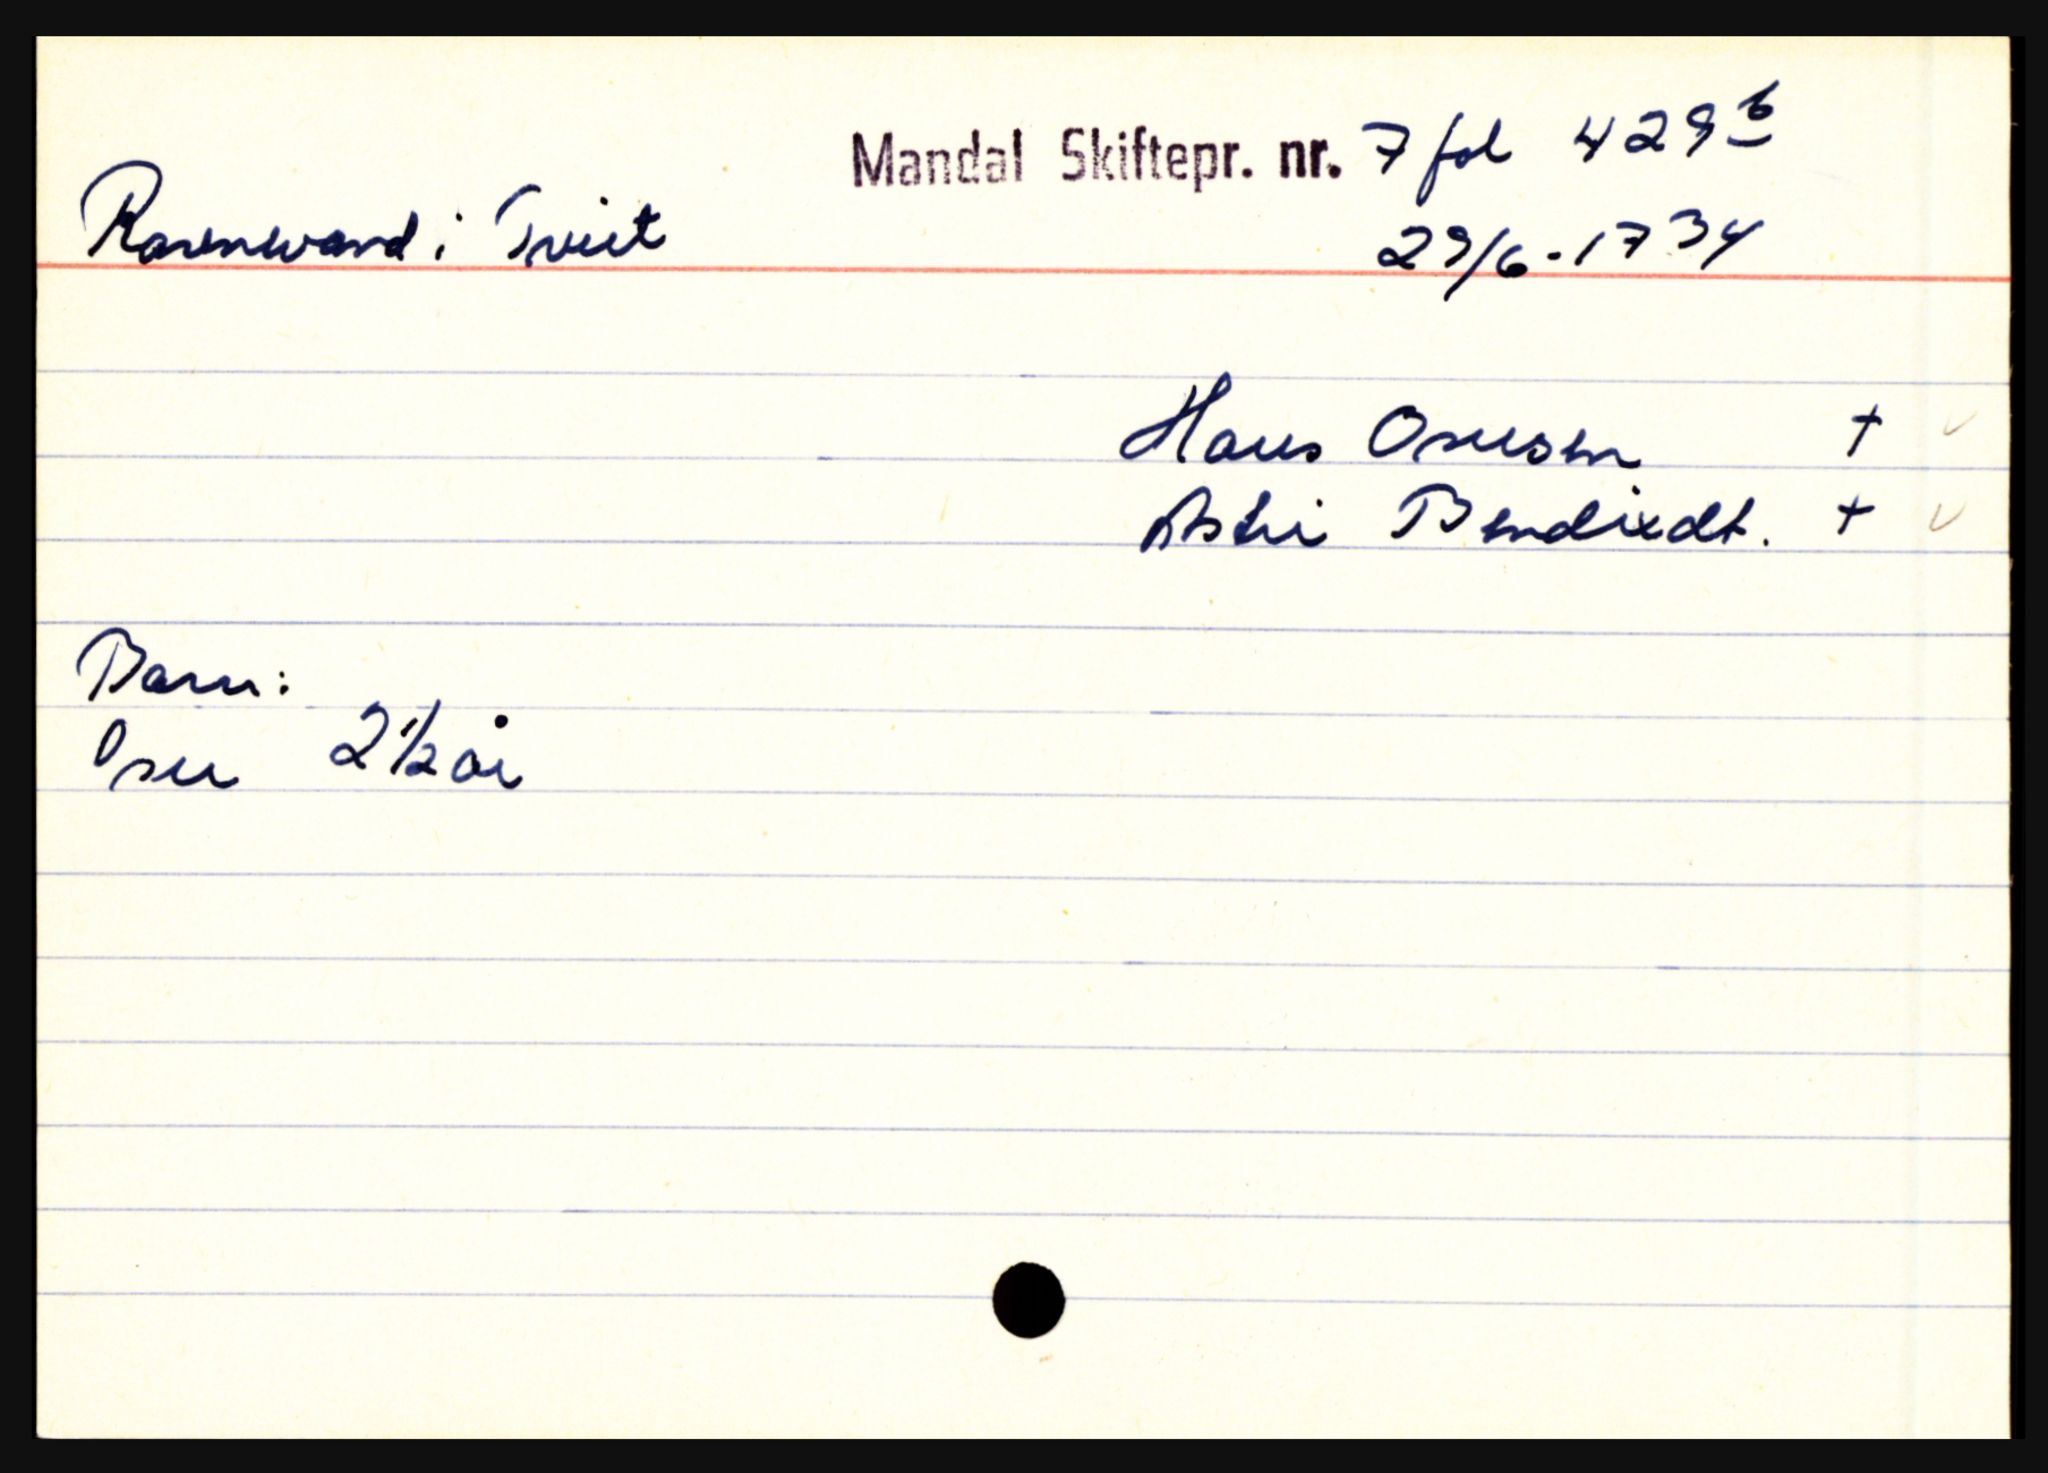 Mandal Skiftepr. nr. 7 fol 429 b
Rosenvand i Tveit
29/6-1734
Hans Osuesen +
Astri Bendixdt. +
Barn:
Osu 2 1/2 år